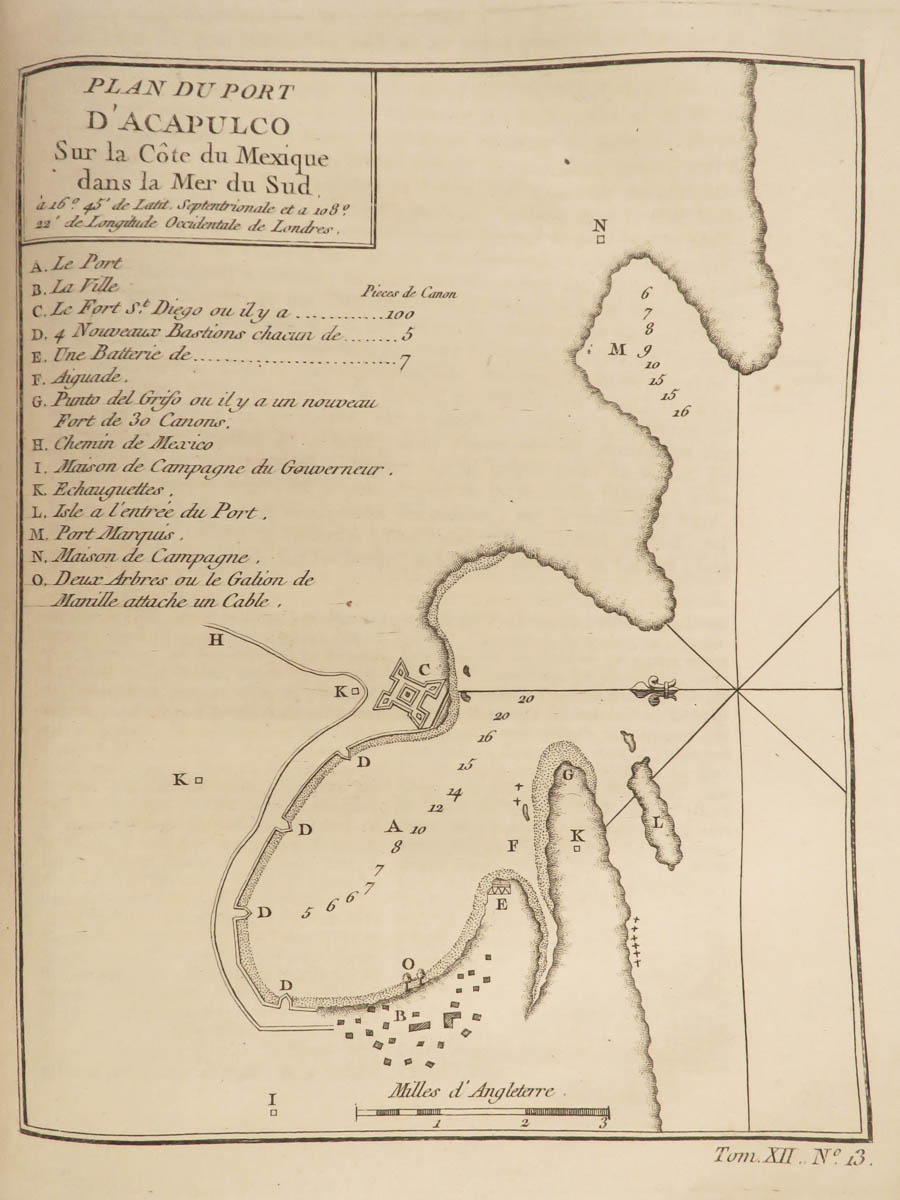 PLAN DU PORT
D'ACAPULCO
Sur la Côte du Mexique
dans la Mer du Sud,
à 16°. 45' de Latit. Septentrionale et a 108°
22' de Longitude Occidentale de Londres.
A. Le Port
B. La Ville
Pieces de Canon
C. Le Fort St. Diego ou il y a ............ 100
D. 4 Nouveaux Bastions chacun de ........ 5
E. Une Batterie de .............................. 7
F. Aiguade.
G. Punto del Grifo ou il y a un nouveau
Fort de 30 Canons.
H. Chemin de Mexico
I. Maison de Campagne du Gouverneur.
K. Echauguettes.
L. Isle a l'entrée du Port.
M. Port Marquis.
N. Maison de Campagne.
O. Deux Arbres ou le Galion de
Manille attache un Cable.
N
6
7
8
M 9
10
15
15
16
H
C
K
20
20
16
D
15
G
K
14
12
L
D
A 10
K
8
F
7
7
6
6
5
D
E
O
D
B
I
Milles d'Angleterre.
1 2 3
Tom. XII.. N°. 13.